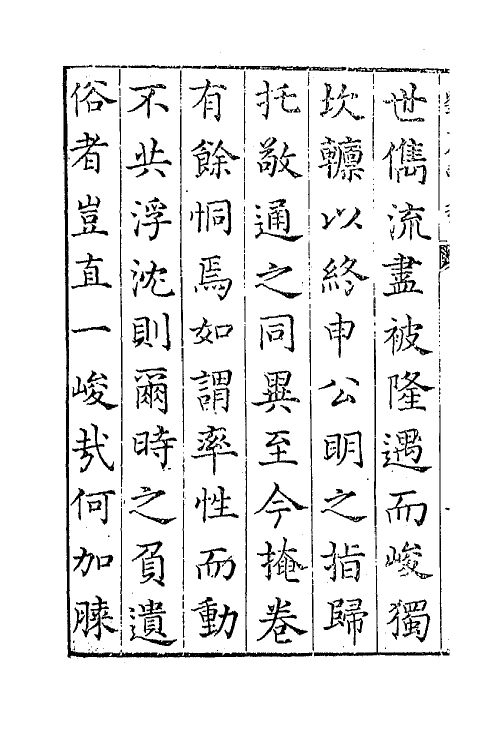 世儁流盡被隆遇而峻獨
坎軅以終申公明之指歸
托敬通之同異至今掩卷
有餘恫焉如謂率性而動
不共浮沈則爾時之負遺
俗者豈直一峻㢤何加脨